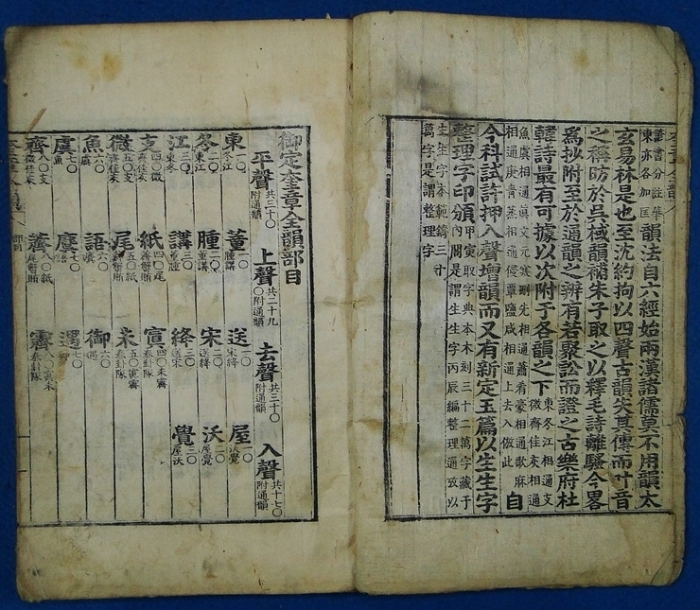 書分註華
東亦各加匡
韻法自六經始兩漢諸儒莫不用韻太
玄易林是也至沈約拘以四聲古韻失其傳而叶音
之稱昉於吳棫韻補朱子取之以釋毛詩離騷今畧
爲抄附至於通韻之辨有若聚訟而證之古樂府杜
韓詩最有可據以次附于各韻之下
東冬江相通支
微齊佳灰相通
魚虞相通眞文元寒刪先相通蕭肴豪相通歌麻
相通庚靑蒸相通侵覃鹽咸相通上去入倣此
自
今科試許押入聲增韻而又有新定玉篇以生生字
整理字印頒
甲寅取字典字本木刻三十二萬字藏于
內閣是謂生生字丙辰編整理通致以
生生字本範鑄三十
萬字是謂整理字
御定奎章全韻部目
平聲共三十〇附通韻 上聲共二十九〇附通韻 去聲共三十〇附通韻 入聲共十七〇附通韻
東一〇冬江 董一〇腫講 送一〇宋絳 屋一〇沃覺
冬二〇東江 腫二〇董講 宋二〇送絳 沃二〇屋覺
江三〇東冬 講三〇董腫 絳三〇送宋 覺三〇屋沃
支四〇微齊佳灰 紙四〇尾薺蟹賄 寘四〇未霽泰卦隊
微五〇支齊佳灰 尾五〇紙薺蟹賄 未五〇寘霽泰卦隊
魚六〇虞 語六〇麌 御六〇遇
虞七〇魚 麌七〇語 遇七〇御
齊八〇支微佳灰 薺八〇紙尾蟹賄 霽八〇寘未泰卦隊